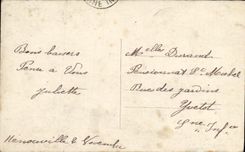 NE IN
Bons baisers
Pense à Vous
Juliette
Henouville 4 Novembre
Melle Durand
Pensionnat St Michel
Rue des jardins
Yvetot
Sne Infre